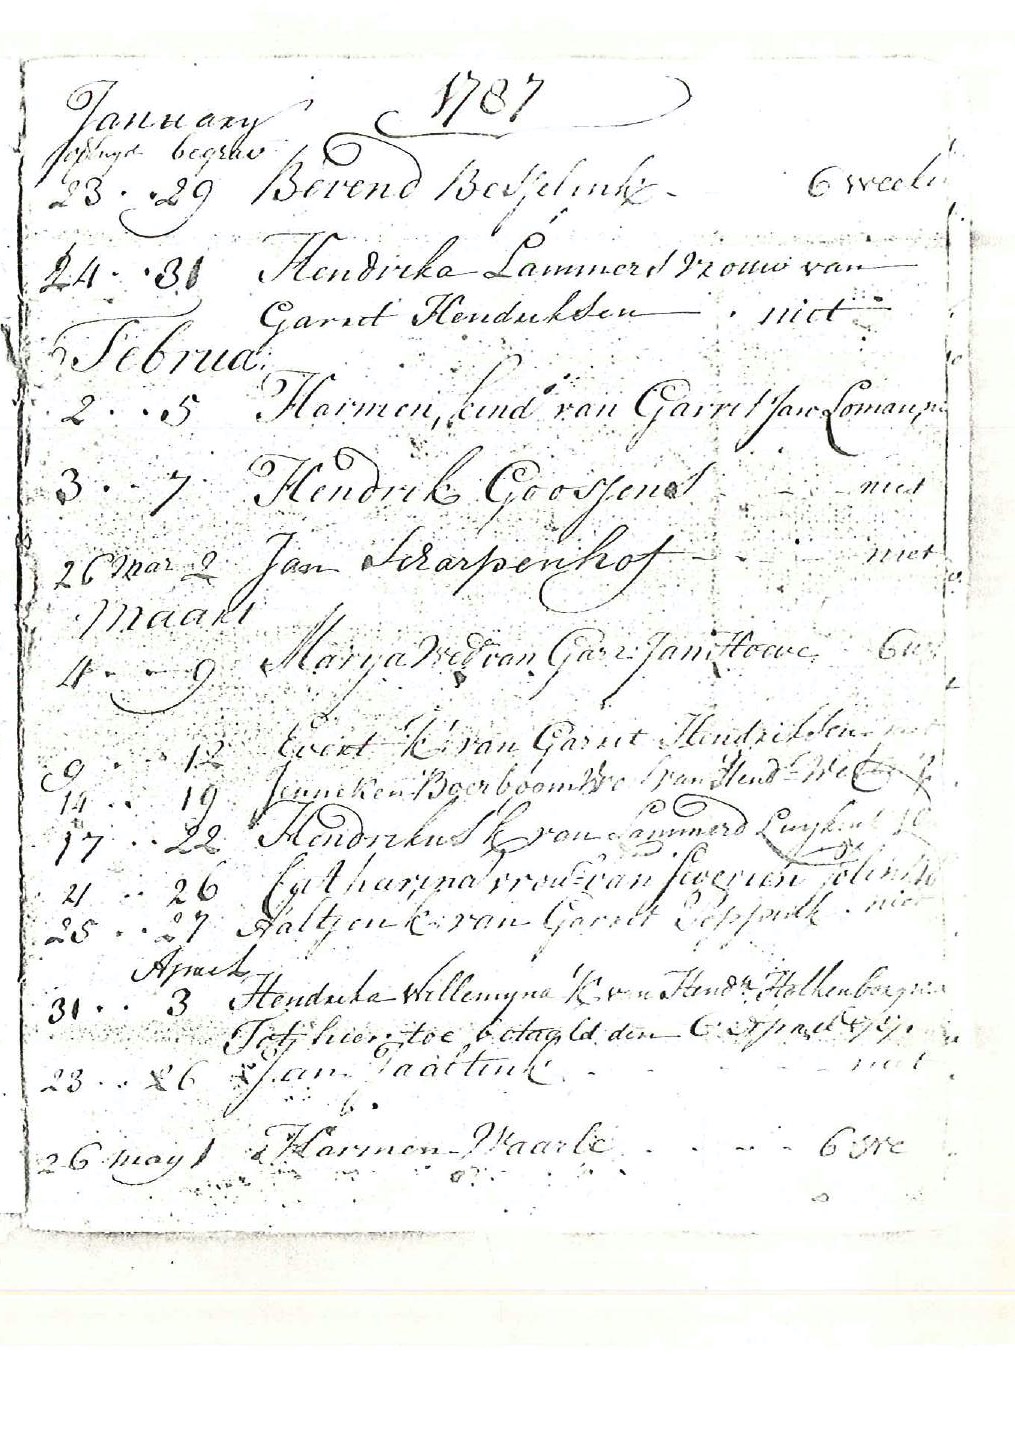 1787
January
begrav
23 .. 29 Berend Besselink - 6 weeken
24 .. 31 Hendrika Lammers vrouw van
Garret Hendriksen . niet
Februa:
2 .. 5 Harmen, kind van Garrit Jan Loman, ni
3 .. 7 Hendrik Goossens - - niet
26 Mar 2 Jan Scharpenhof - - - niet
Maart
4 .. 9 Marya Wed van Garr: Jan Hoeve 6 w
9 .. 12 Evert k: van Garret Hendriksen niet
14 .. 19 Jenneken Boerboom We van Hend:
17 .. 22 Hendrikus k van Lammerd
21 .. 26 Catharina vrou: van
25 .. 27 Aaltjen k: van Garret . niet
April
31 .. 3 Hendrika Willemyna k: van Hendr:
Tot hier toe betaeld den 6 April
23 .. 26 Jan niet
26 may 1 Harmen Waarle . . - - - 6 we